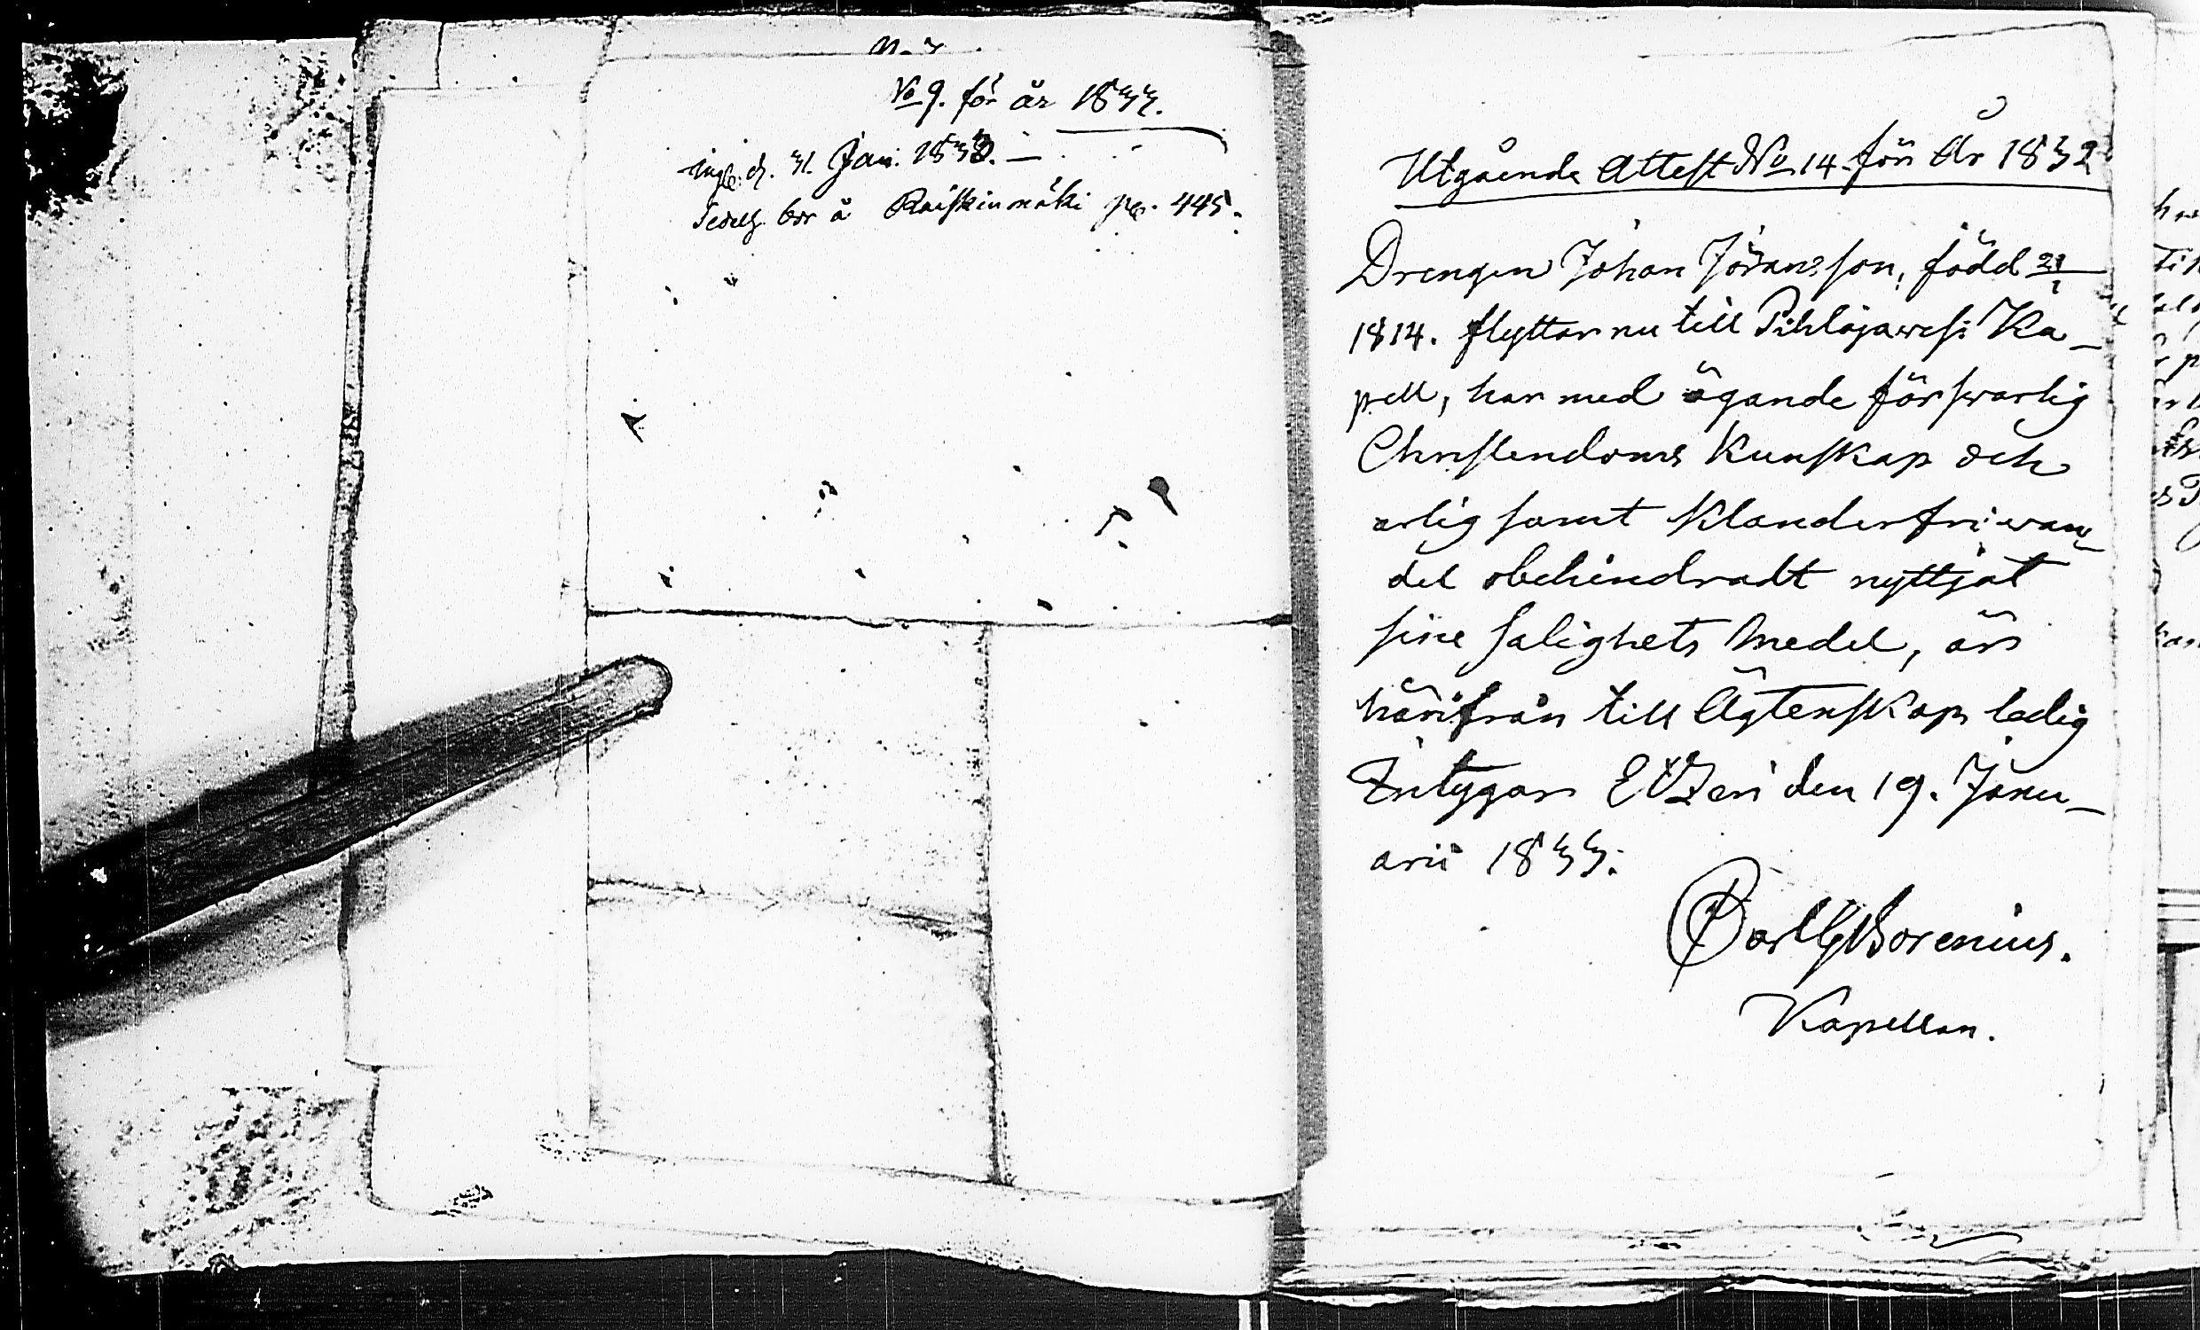 No 9. för år 1833.
ingb. d. 31. Jan. 1833. —
bor å Raiskinmäki pg. 445.
Utgående Attest No 14. för År 1832
Drengen Johan Jöransson, född 21
1814. flyttar nu till Pihlajawesi Ka-
pell, har med ägande försvarlig
Christendoms Kunskap och
ärlig samt klanderfri wan-
del obehindradt nyttjat
sine salighets medel, är
härifrån till Ägtenskap ledig
Intygar Etzeri den 19. Janu-
arii 1833.
Carl G Borenius.
Kapellan.